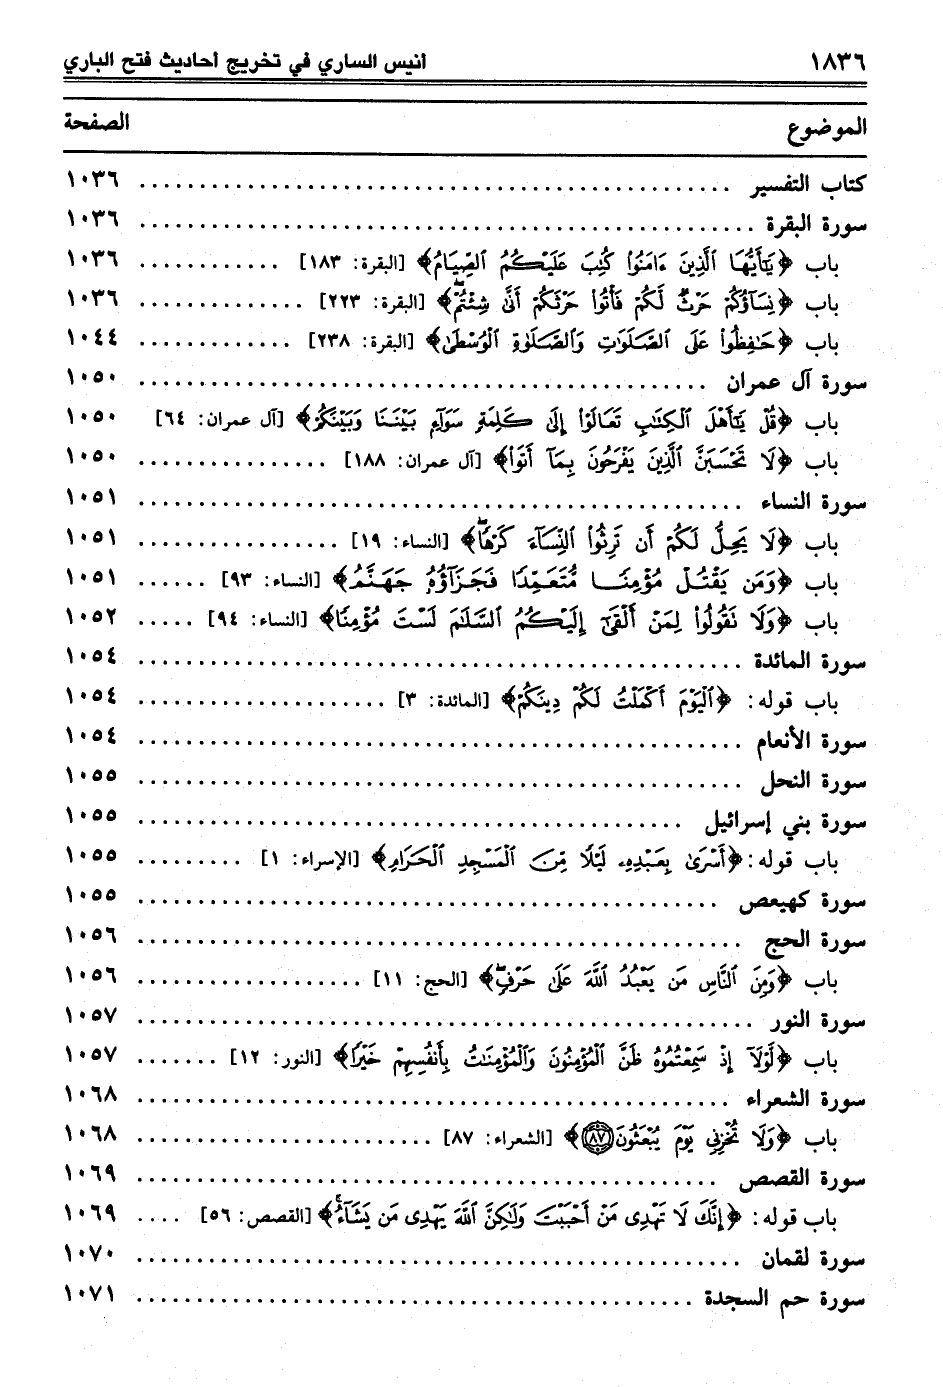 ١٨٣٦ أنيس الساري في تخريج أحاديث فتح الباري
الموضوع الصفحة
كتاب التفسير ........ ١٠٣٦
سورة البقرة ........ ١٠٣٦
باب ﴿يَٰٓأَيُّهَا ٱلَّذِينَ ءَامَنُوا۟ كُتِبَ عَلَيْكُمُ ٱلصِّيَامُ﴾ [البقرة: ١٨٣] ........ ١٠٣٦
باب ﴿نِسَآؤُكُمْ حَرْثٌ لَّكُمْ فَأْتُوا۟ حَرْثَكُمْ أَنَّىٰ شِئْتُمْ ۖ﴾ [البقرة: ٢٢٣] ........ ١٠٣٦
باب ﴿حَٰفِظُوا۟ عَلَى ٱلصَّلَوَٰتِ وَٱلصَّلَوٰةِ ٱلْوُسْطَىٰ﴾ [البقرة: ٢٣٨] ........ ١٠٤٤
سورة آل عمران ........ ١٠٥٠
باب ﴿قُلْ يَٰٓأَهْلَ ٱلْكِتَٰبِ تَعَالَوْا۟ إِلَىٰ كَلِمَةٍ سَوَآءٍ بَيْنَنَا وَبَيْنَكُمْ﴾ [آل عمران: ٦٤] ١٠٥٠
باب ﴿لَا تَحْسَبَنَّ ٱلَّذِينَ يَفْرَحُونَ بِمَآ أَتَوا۟﴾ [آل عمران: ١٨٨] ........ ١٠٥٠
سورة النساء ........ ١٠٥١
باب ﴿لَا يَحِلُّ لَكُمْ أَن تَرِثُوا۟ ٱلنِّسَآءَ كَرْهًا ۖ﴾ [النساء: ١٩] ........ ١٠٥١
باب ﴿وَمَن يَقْتُلْ مُؤْمِنًا مُّتَعَمِّدًا فَجَزَآؤُهُۥ جَهَنَّمُ﴾ [النساء: ٩٣] ...... ١٠٥١
باب ﴿وَلَا تَقُولُوا۟ لِمَنْ أَلْقَىٰٓ إِلَيْكُمُ ٱلسَّلَٰمَ لَسْتَ مُؤْمِنًا﴾ [النساء: ٩٤] ..... ١٠٥٢
سورة المائدة ........ ١٠٥٤
باب قوله: ﴿ٱلْيَوْمَ أَكْمَلْتُ لَكُمْ دِينَكُمْ﴾ [المائدة: ٣] ........ ١٠٥٤
سورة الأنعام ........ ١٠٥٤
سورة النحل ........ ١٠٥٥
سورة بني إسرائيل ........ ١٠٥٥
باب قوله: ﴿أَسْرَىٰ بِعَبْدِهِۦ لَيْلًا مِّنَ ٱلْمَسْجِدِ ٱلْحَرَامِ﴾ [الإسراء: ١] ........ ١٠٥٥
سورة كهيعص ........ ١٠٥٥
سورة الحج ........ ١٠٥٦
باب ﴿وَمِنَ ٱلنَّاسِ مَن يَعْبُدُ ٱللَّهَ عَلَىٰ حَرْفٍ ۖ﴾ [الحج: ١١] ........ ١٠٥٦
سورة النور ........ ١٠٥٧
باب ﴿لَّوْلَآ إِذْ سَمِعْتُمُوهُ ظَنَّ ٱلْمُؤْمِنُونَ وَٱلْمُؤْمِنَٰتُ بِأَنفُسِهِمْ خَيْرًا﴾ [النور: ١٢] ....... ١٠٥٧
سورة الشعراء ........ ١٠٦٨
باب ﴿وَلَا تُخْزِنِى يَوْمَ يُبْعَثُونَ ٨٧﴾ [الشعراء: ٨٧] ........ ١٠٦٨
سورة القصص ........ ١٠٦٩
باب قوله: ﴿إِنَّكَ لَا تَهْدِى مَنْ أَحْبَبْتَ وَلَٰكِنَّ ٱللَّهَ يَهْدِى مَن يَشَآءُ ۚ﴾ [القصص: ٥٦] .... ١٠٦٩
سورة لقمان ........ ١٠٧٠
سورة حم السجدة ........ ١٠٧١